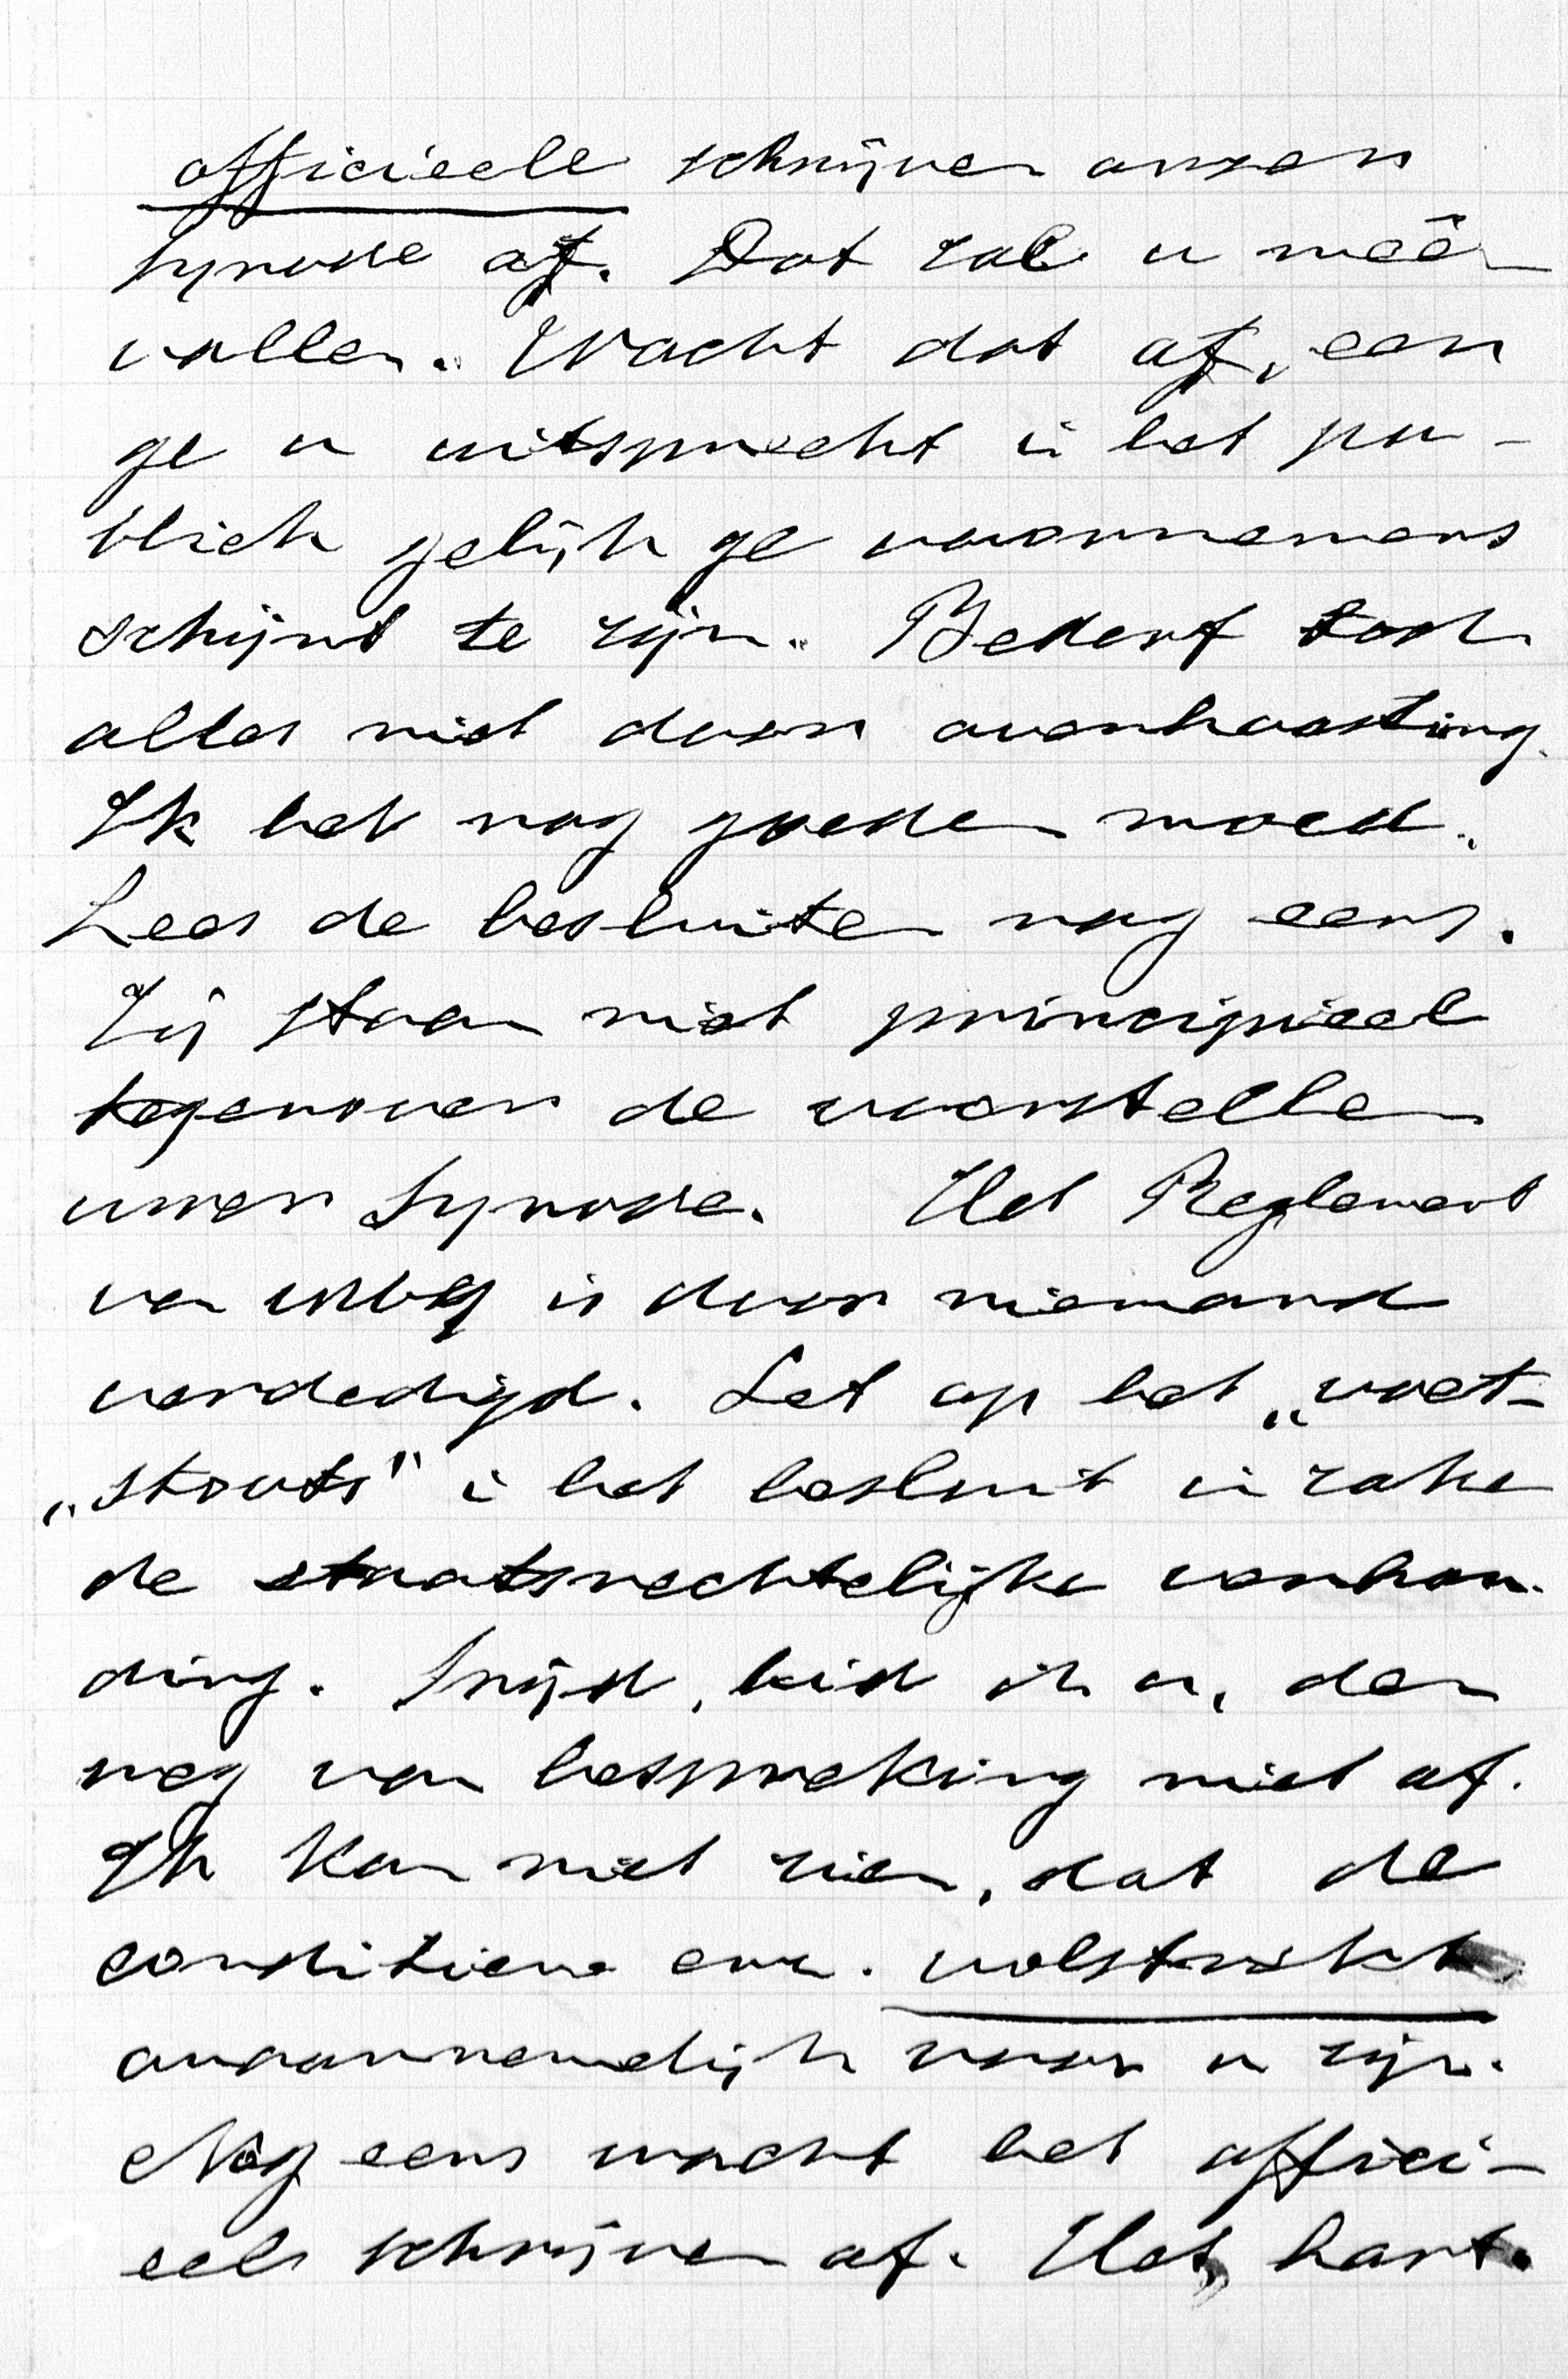 officieele schrijven onzer
Synode af. Dat zal u meê
vallen. Wacht dat af, eer
ge u uitspreekt in het pu-
bliek gelijk ge voornemens
schijnt te zijn. Bederf toch
alles niet door overhaasting.
Ik heb nog goeden moed.
Lees de besluiten nog eens.
Zij staan niet principieel
tegenover de voorstellen
uwer Synode. Het Reglement
van is door niemand
verdedigd. Let op het „voet-
„stoots" in het besluit in zake
de staatsrechtelijke verhou-
ding. Snijd, bid ik u, den
weg van bespreking niet af.
Ik kan niet zien, dat de
conditiën enz. volstrekt
onaannemelijk voor u zijn.
Nog eens wacht het offici-
eele schrijven af. Het hart.